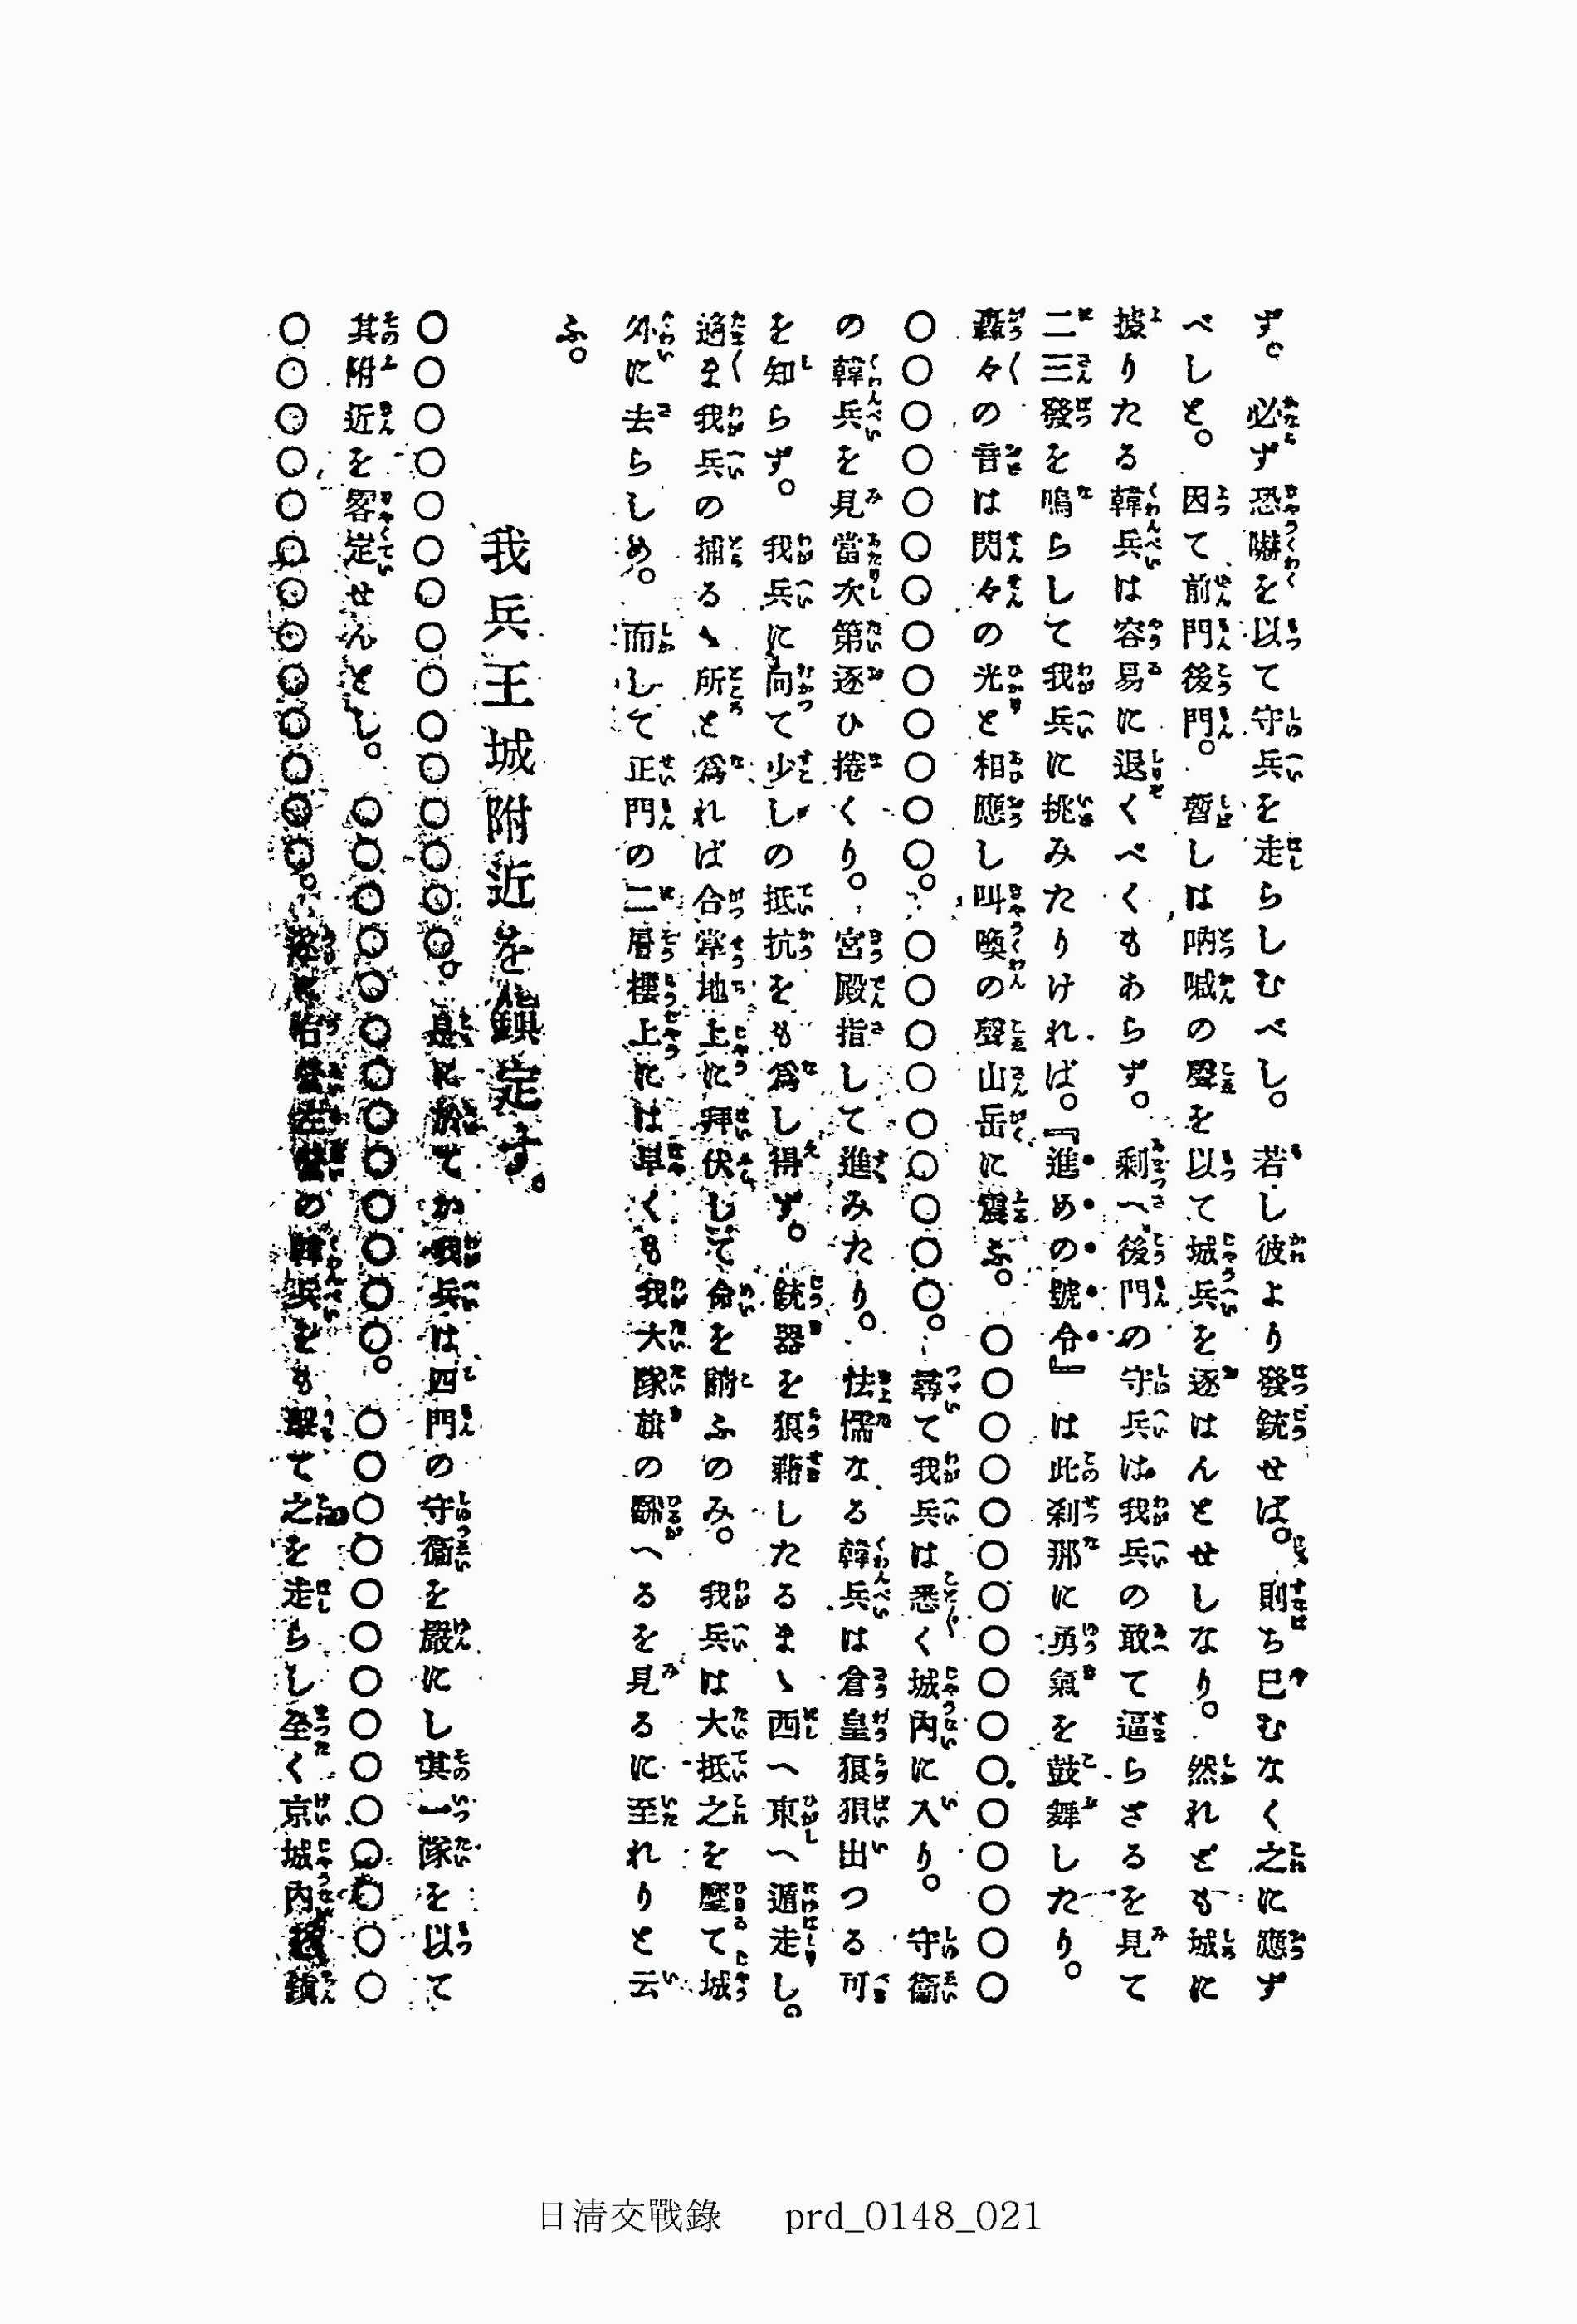 ず。必ず恐嚇を以て守兵を走らしむべし。若し彼より發銃せば。則ち已むなく之に應ず
べしと。因て前門後門。暫しは吶喊の聲を以て城兵を逐はんとせしなり。然れども城に
據りたる韓兵は容易に退くべくもあらず。剩へ後門の守兵は我兵の敢て逼らざるを見て
二三發を鳴らして我兵に挑みたりければ。『進めの號令』は此刹那に勇氣を鼓舞したり。
轟々の音は閃々の光と相應し叫喚の聲山岳に震ふ。〇〇〇〇〇〇〇〇〇〇〇〇〇〇〇〇
〇〇〇〇〇〇〇〇〇〇〇〇〇。〇〇〇〇〇〇〇〇〇。尋て我兵は悉く城内に入り。守衞
の韓兵を見當次第逐ひ捲くり。宮殿指して進みたり。怯懦なる韓兵は倉皇狼狽出つる可
を知らず。我兵に向て少しの抵抗をも爲し得ず。銃器を狼藉したるまゝ西へ東へ遁走し。
適ま〱我兵の捕るゝ所と爲れば合掌地上に拜伏して命を請ふのみ。我兵は大抵之を麾て城
外に去らしめ。而して正門の二層樓上には早くも我大隊旗の飜へるを見るに至れりと云
ふ。
我兵王城附近を鎭定す。
〇〇〇〇〇〇〇〇〇〇〇〇〇〇〇。是に於てか我兵は四門の守衞を嚴にし其一隊を以て
其附近を畧定せんとし。〇〇〇〇〇〇〇〇〇〇〇〇〇。〇〇〇〇〇〇〇〇〇〇〇〇〇〇
〇〇〇〇〇〇〇〇〇〇〇〇〇。の韓兵をも擊て之を走らし全く京城内鎭